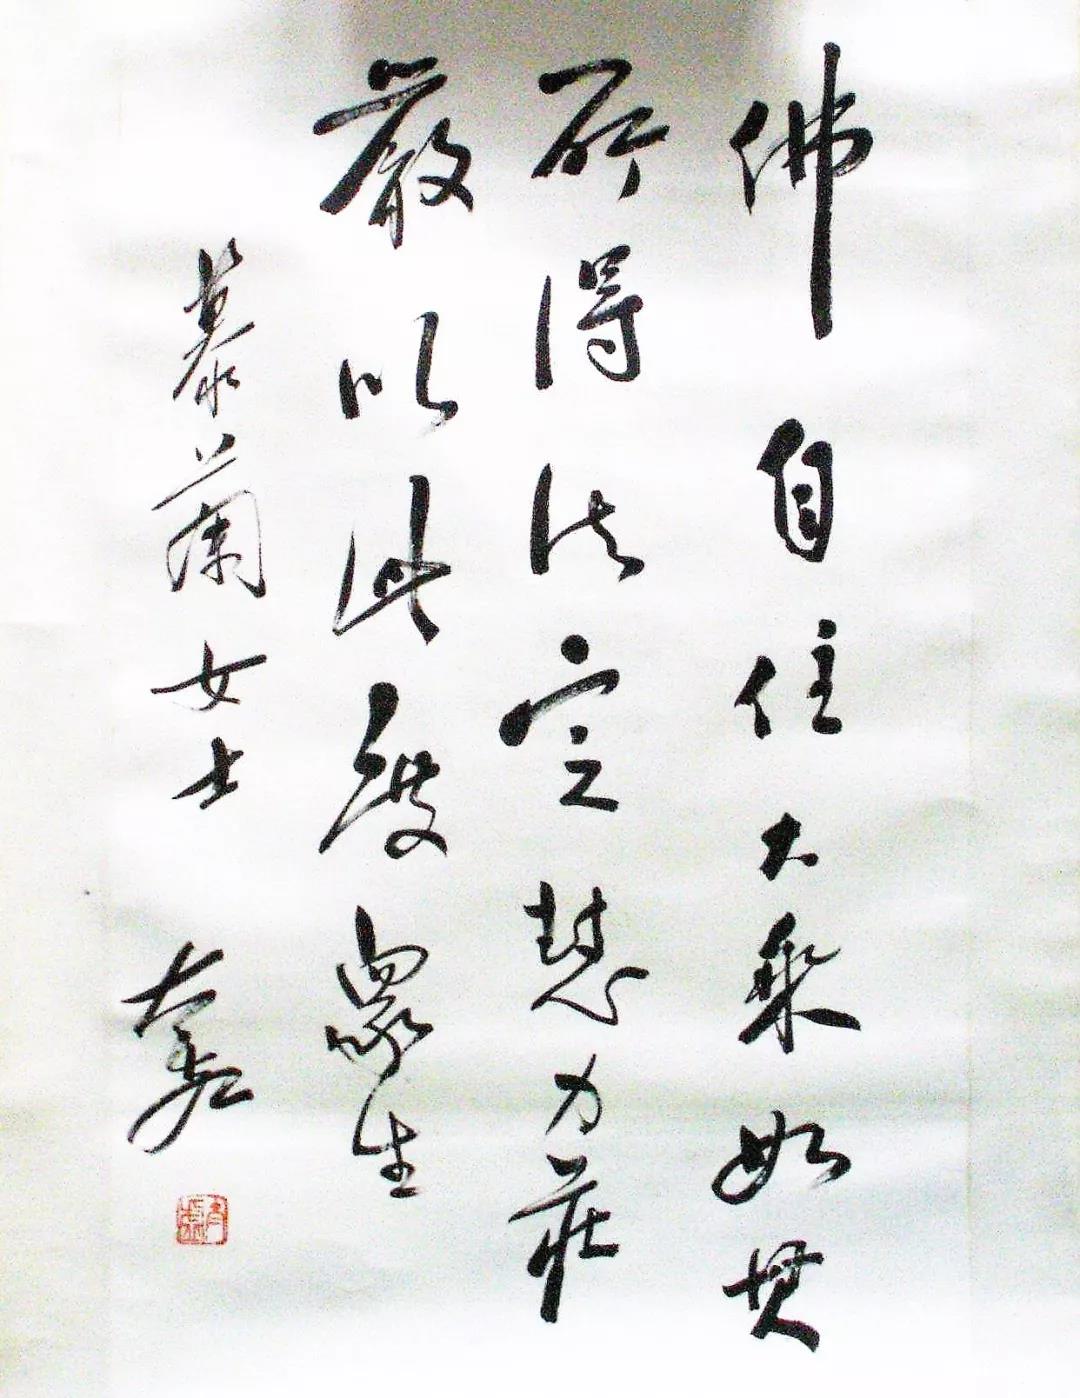 佛自住大乘如其
所得法定慧力莊
嚴以此度眾生
慕蘭女士 太虛